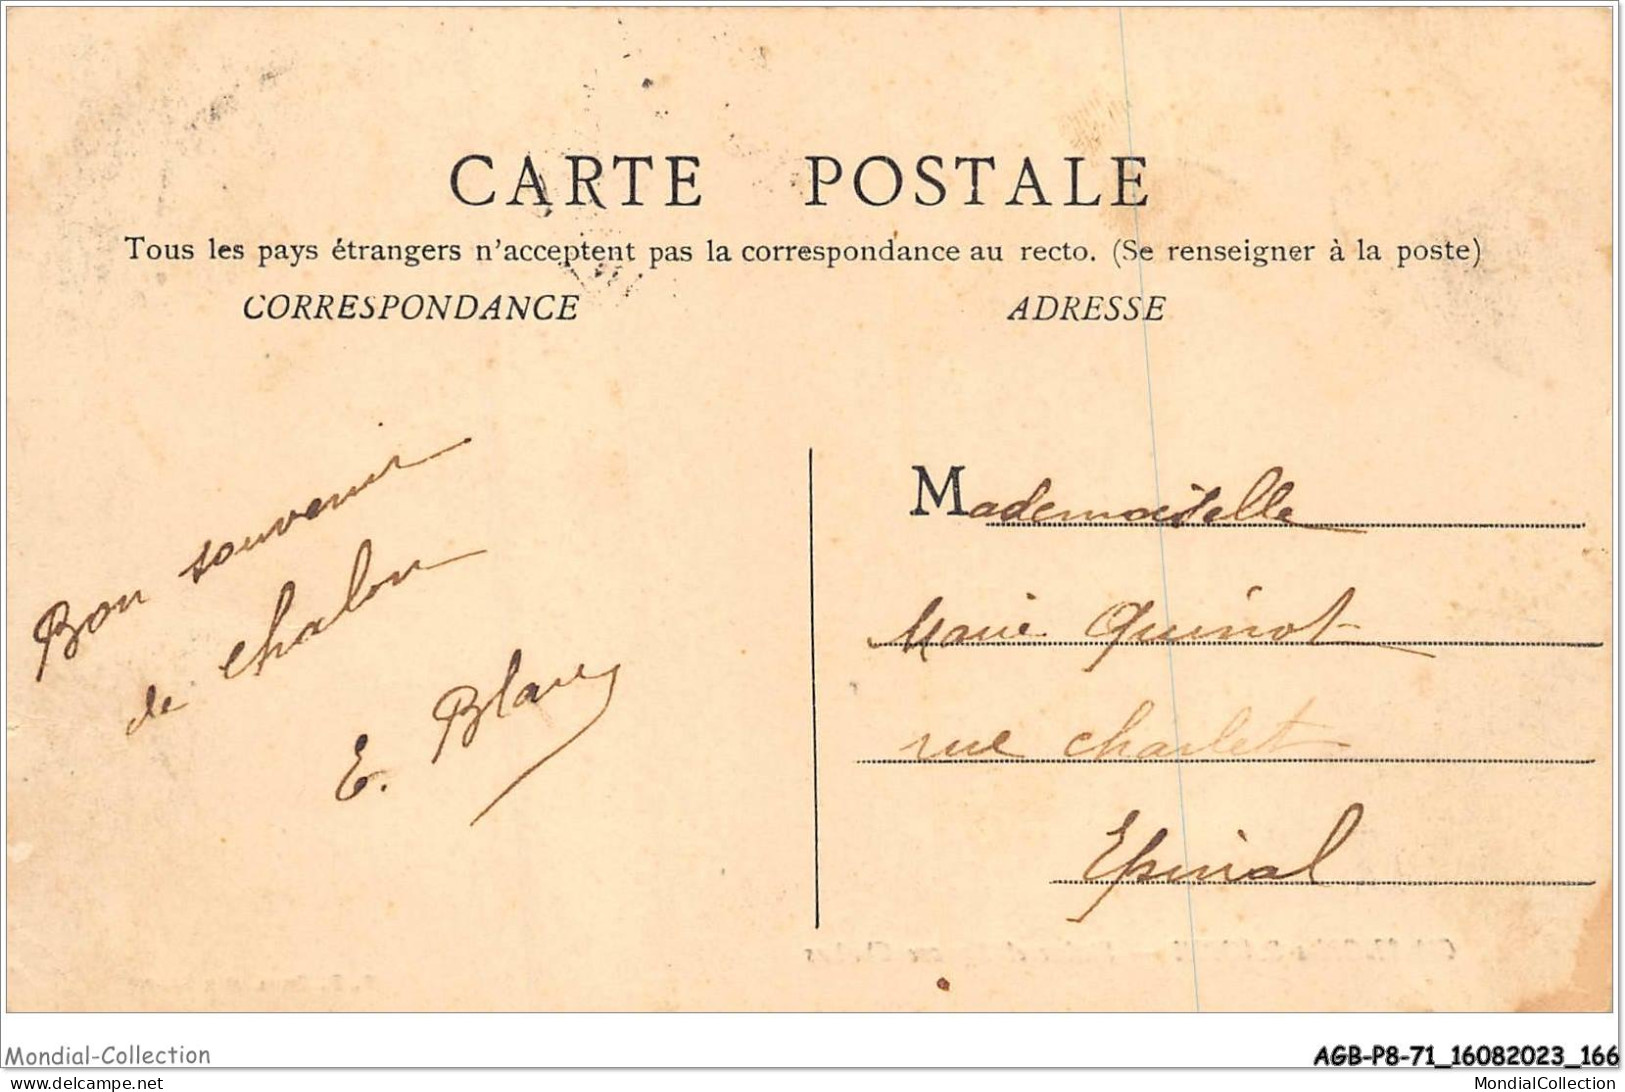 CARTE POSTALE
Tous les pays étrangers n'acceptent pas la correspondance au recto. (Se renseigner à la poste)
CORRESPONDANCE
ADRESSE
Bon souvenir
de Chalon
E.
Mademoiselle
Marie Quinot
rue Charlet
Epinal
Mondial-Collection
AGB-P8-71_16082023_166
www.delcampe.net
MondialCollection